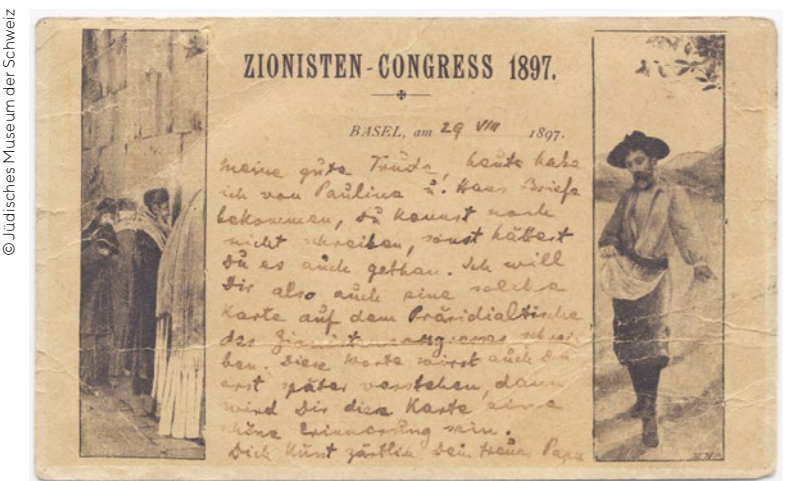 © Jüdisches Museum der Schweiz
ZIONISTEN-CONGRESS 1897.
BASEL, am 29 VIII 1897.
Meine gute Trude, heute habe
ich von Pauline u. Hans Briefe
bekommen, Du kannst noch
nicht schreiben, sonst hättest
Du es auch gethan. Ich will
Dir also auch eine solche
Karte auf dem Präsidialtische
des Zionistencongresses schrei-
ben. Diese Worte wirst auch Du
erst später verstehen, dann
wird Dir diese Karte eine
schöne Erinnerung sein.
Dich küsst zärtlich Dein treuer Papa